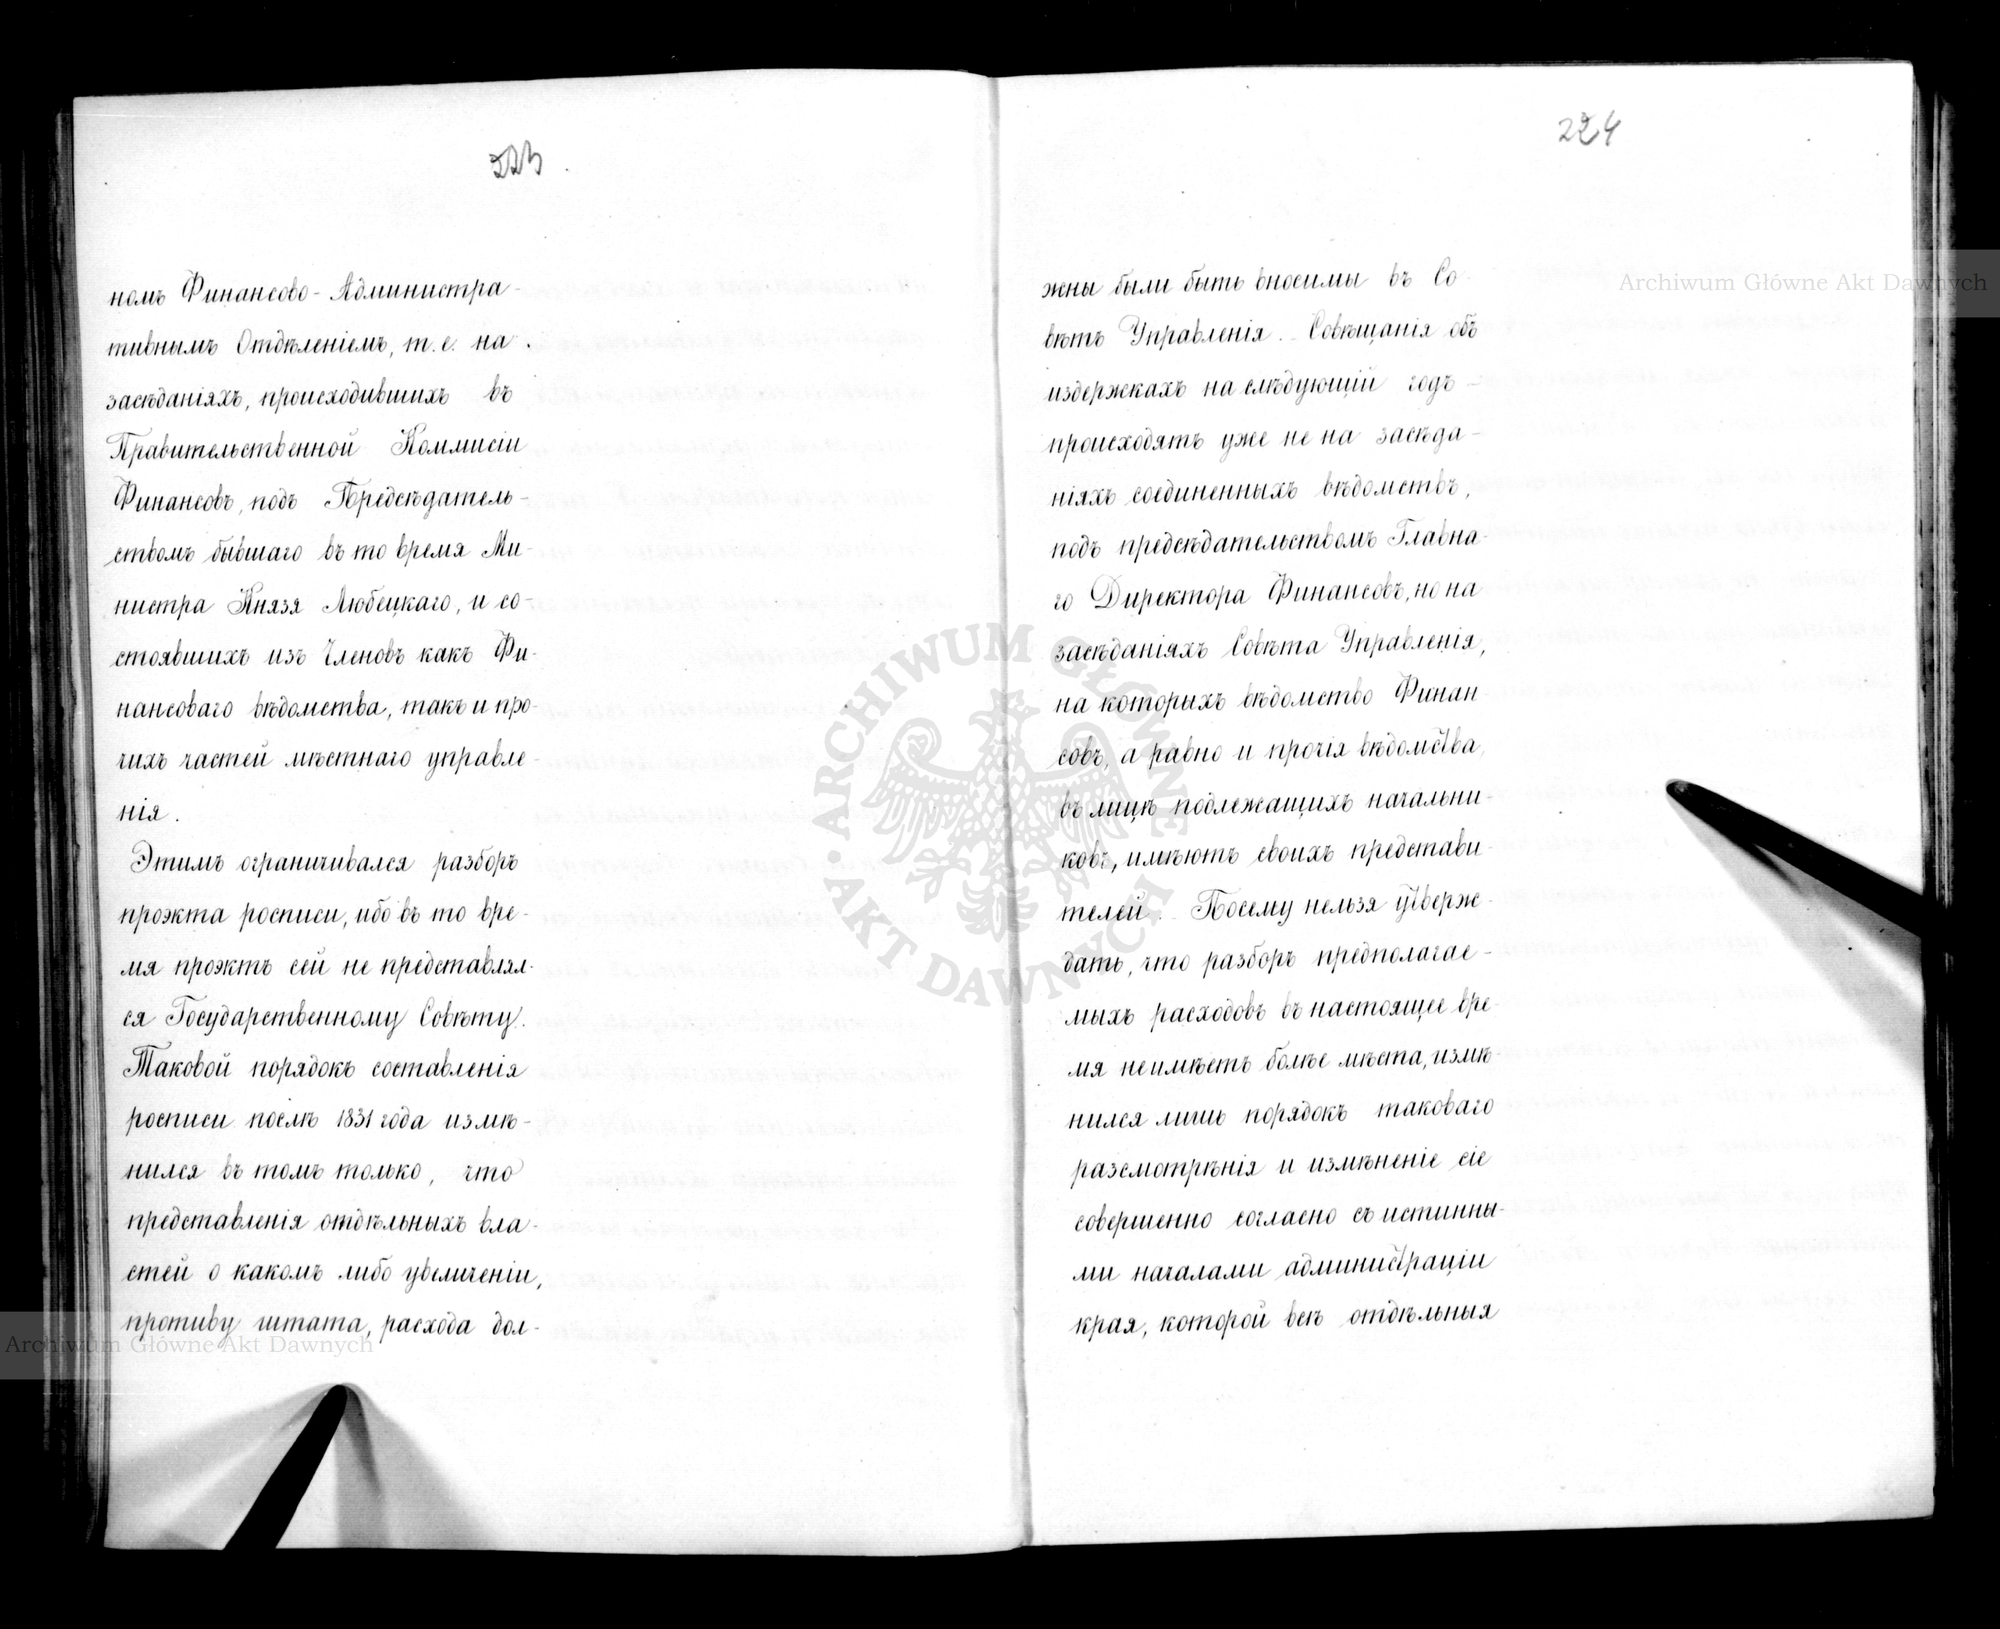 223.
номъ Финансово-Администра-
тивнымъ Отдѣленіемъ, т.е. на
засѣданіяхъ, происходившихъ въ
Правительственной Коммисіи
Финансовъ, подъ Предсѣдатель-
ствомъ бывшаго въ то время Ми-
нистра Князя Любецкаго, и со-
стоявшихъ изъ Членовъ какъ Фи-
нансоваго вѣдомства, такъ и про-
чихъ частей мѣстнаго управле-
нія.
Этимъ ограничивался разборъ
проэкта росписи, ибо въ то вре-
мя проэктъ сей не представлял-
ся Государственному Совѣту.
Таковой порядокъ составленія
росписи послѣ 1831 года измѣ-
нился въ томъ только, что
представленія отдѣльныхъ вла-
стей о какомъ либо увеличеніи,
противу штата, расхода дол-
224
жны были быть вносимы въ Со-
вѣтъ Управленія. Совѣщанія объ
издержкахъ на слѣдующій годъ
происходятъ уже не на засѣда-
ніяхъ соединенныхъ вѣдомствъ,
подъ предсѣдательствомъ Главна-
го Директора Финансовъ, но на
засѣданіяхъ Совѣта Управленія,
на которыхъ вѣдомство Финан
совъ, а равно и прочія вѣдомства,
въ лицѣ подлежащихъ начальни-
ковъ, имѣютъ своихъ представи-
телей. Посему нельзя утверж-
дать, что разборъ предполагае-
мыхъ расходовъ въ настоящее вре-
мя не имѣетъ болѣе мѣста, измѣ-
нился лишь порядокъ таковаго
разсмотрѣнія и измѣненіе сіе
совершенно согласно съ истинны-
ми началами администраціи
края, которой всѣ отдѣльныя
Archiwum Główne Akt Dawnych
ARCHIWUM GŁÓWNE AKT DAWNYCH
Archiwum Główne Akt Dawnych